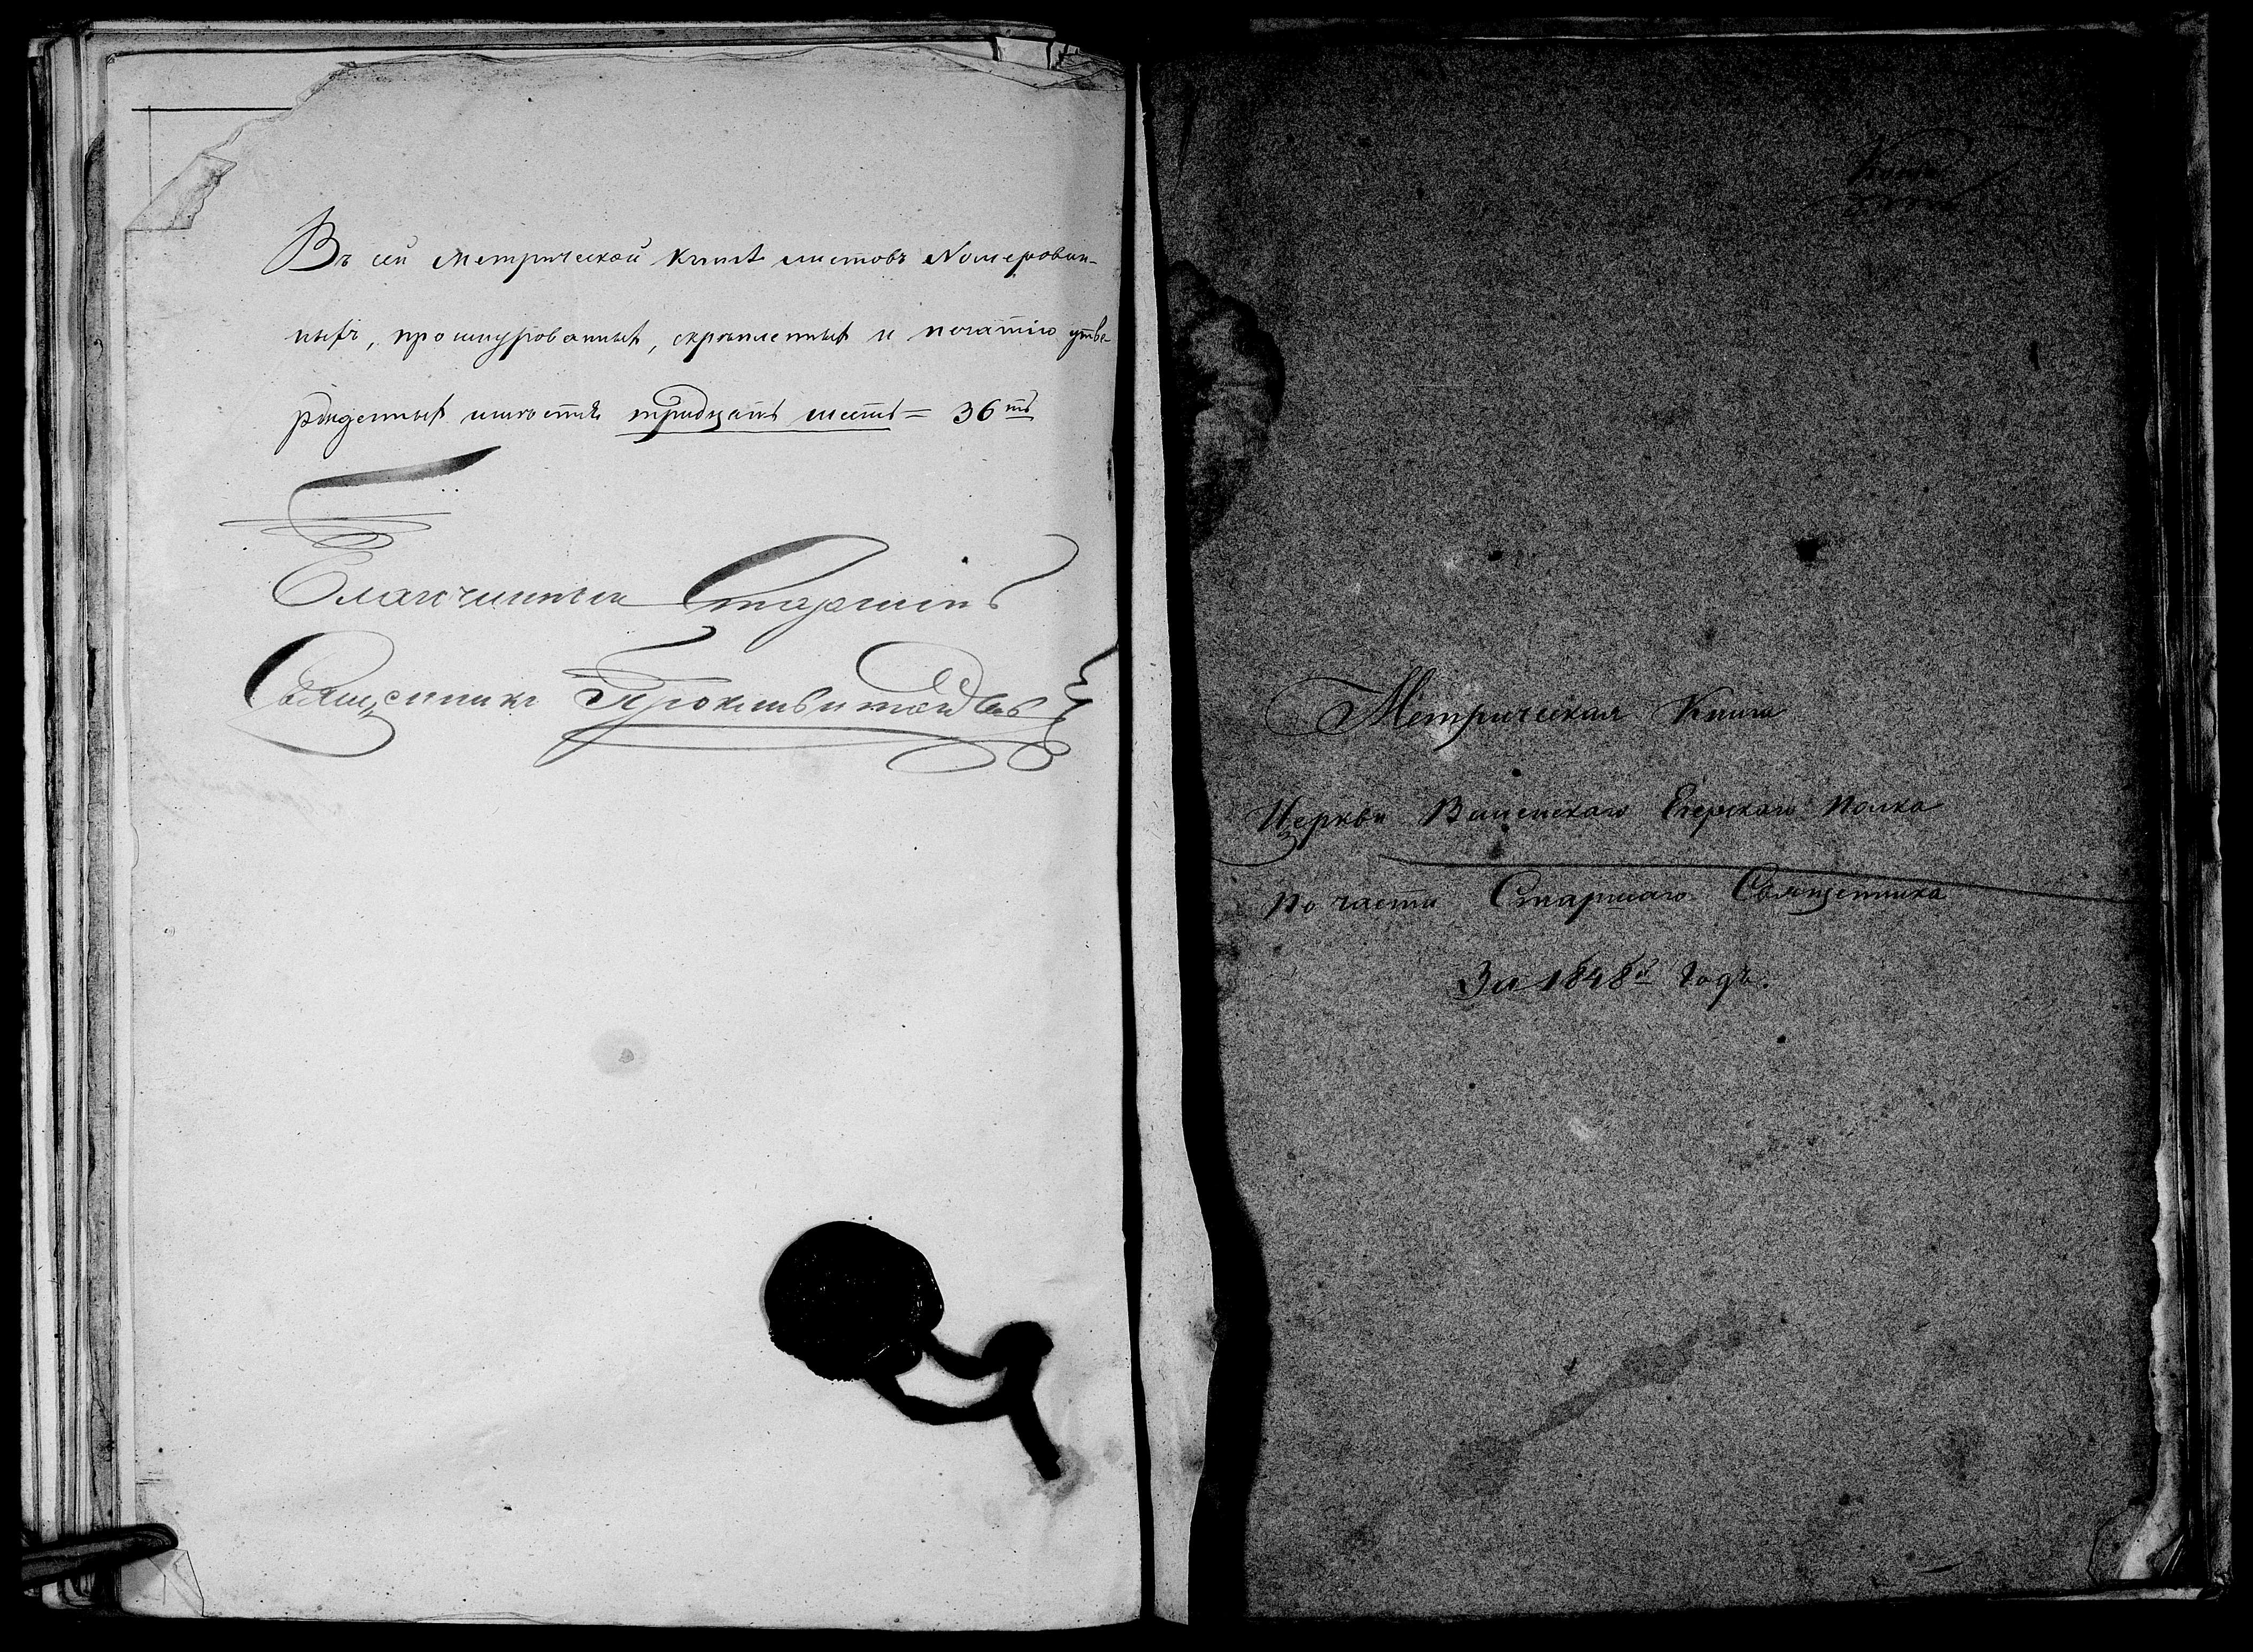 Въ сей Метрической книгѣ листовъ Номерован-
ныхъ, прошнурованныхъ, скрѣпленныхъ и печатію утве
ржденныхъ имѣется тридцать шесть = 36ть
Благочинный Старшій
Священникъ
Метрическая Книга
Церкви Виленскаго Егерскаго Полка
По части Старшаго Священника
За 1848й Годъ.